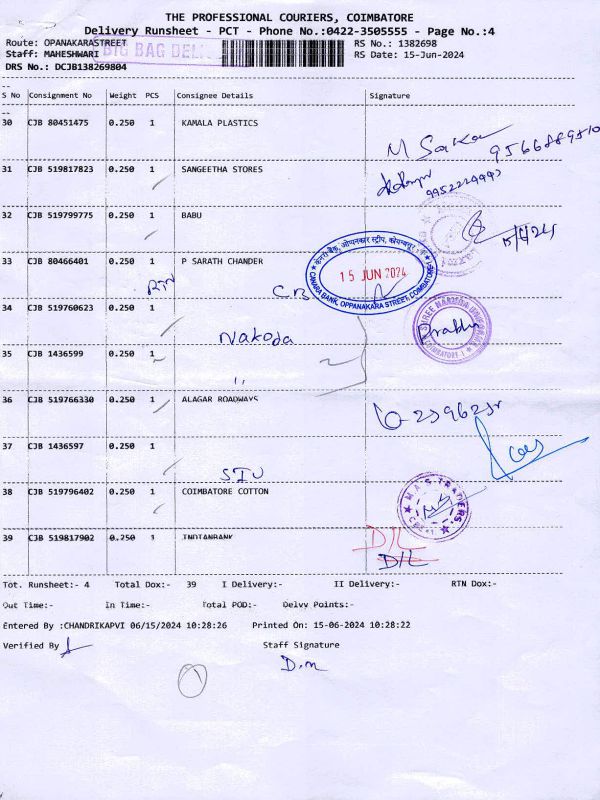 THE PROFESSIONAL COURIERS, COIMBATORE
Delivery Runsheet - PCT - Phone No.:0422-3505555 - Page No.:4
Route: OPANAKARASTREET
RS No.: 1382698
Staff: MAHESHWARI
BIG BAG DEL
RS Date: 15-Jun-2024
DRS No.: DCJB138269804
S No Consignment No Weight PCS Consignee Details Signature
30 CJB 80451475 0.250 1 KAMALA PLASTICS
9566889510
31 CJB 519817823 0.250 1 SANGEETHA STORES
32 CJB 519799775 0.250 1 BABU
33 CJB 80466401 0.250 1 P SARATH CHANDER
CB
15 JUN 2024
CANARA BANK, OPPANAKARA STREET, COIMBATORE
34 CJB 519760623 0.250 1
Nakoda
Prabhu
COIMBATORE-1
35 CJB 1436599 0.250 1
"
36 CJB 519766330 0.250 1 ALAGAR ROADWAYS
37 CJB 1436597 0.250 1
SIU
38 CJB 519796402 0.250 1 COIMBATORE COTTON
M.A.S. TRADERS
CBE-1
39 CJB 519817902 0.250 1 INDIANBANK
D/L
D/L
Tot. Runsheet:- 4 Total Dox:- 39 I Delivery:- II Delivery:- RTN Dox:-
Out Time:- In Time:- Total POD:- Delvy Points:-
Entered By :CHANDRIKAPVI 06/15/2024 10:28:26 Printed On: 15-06-2024 10:28:22
Verified By
Staff Signature
D.m